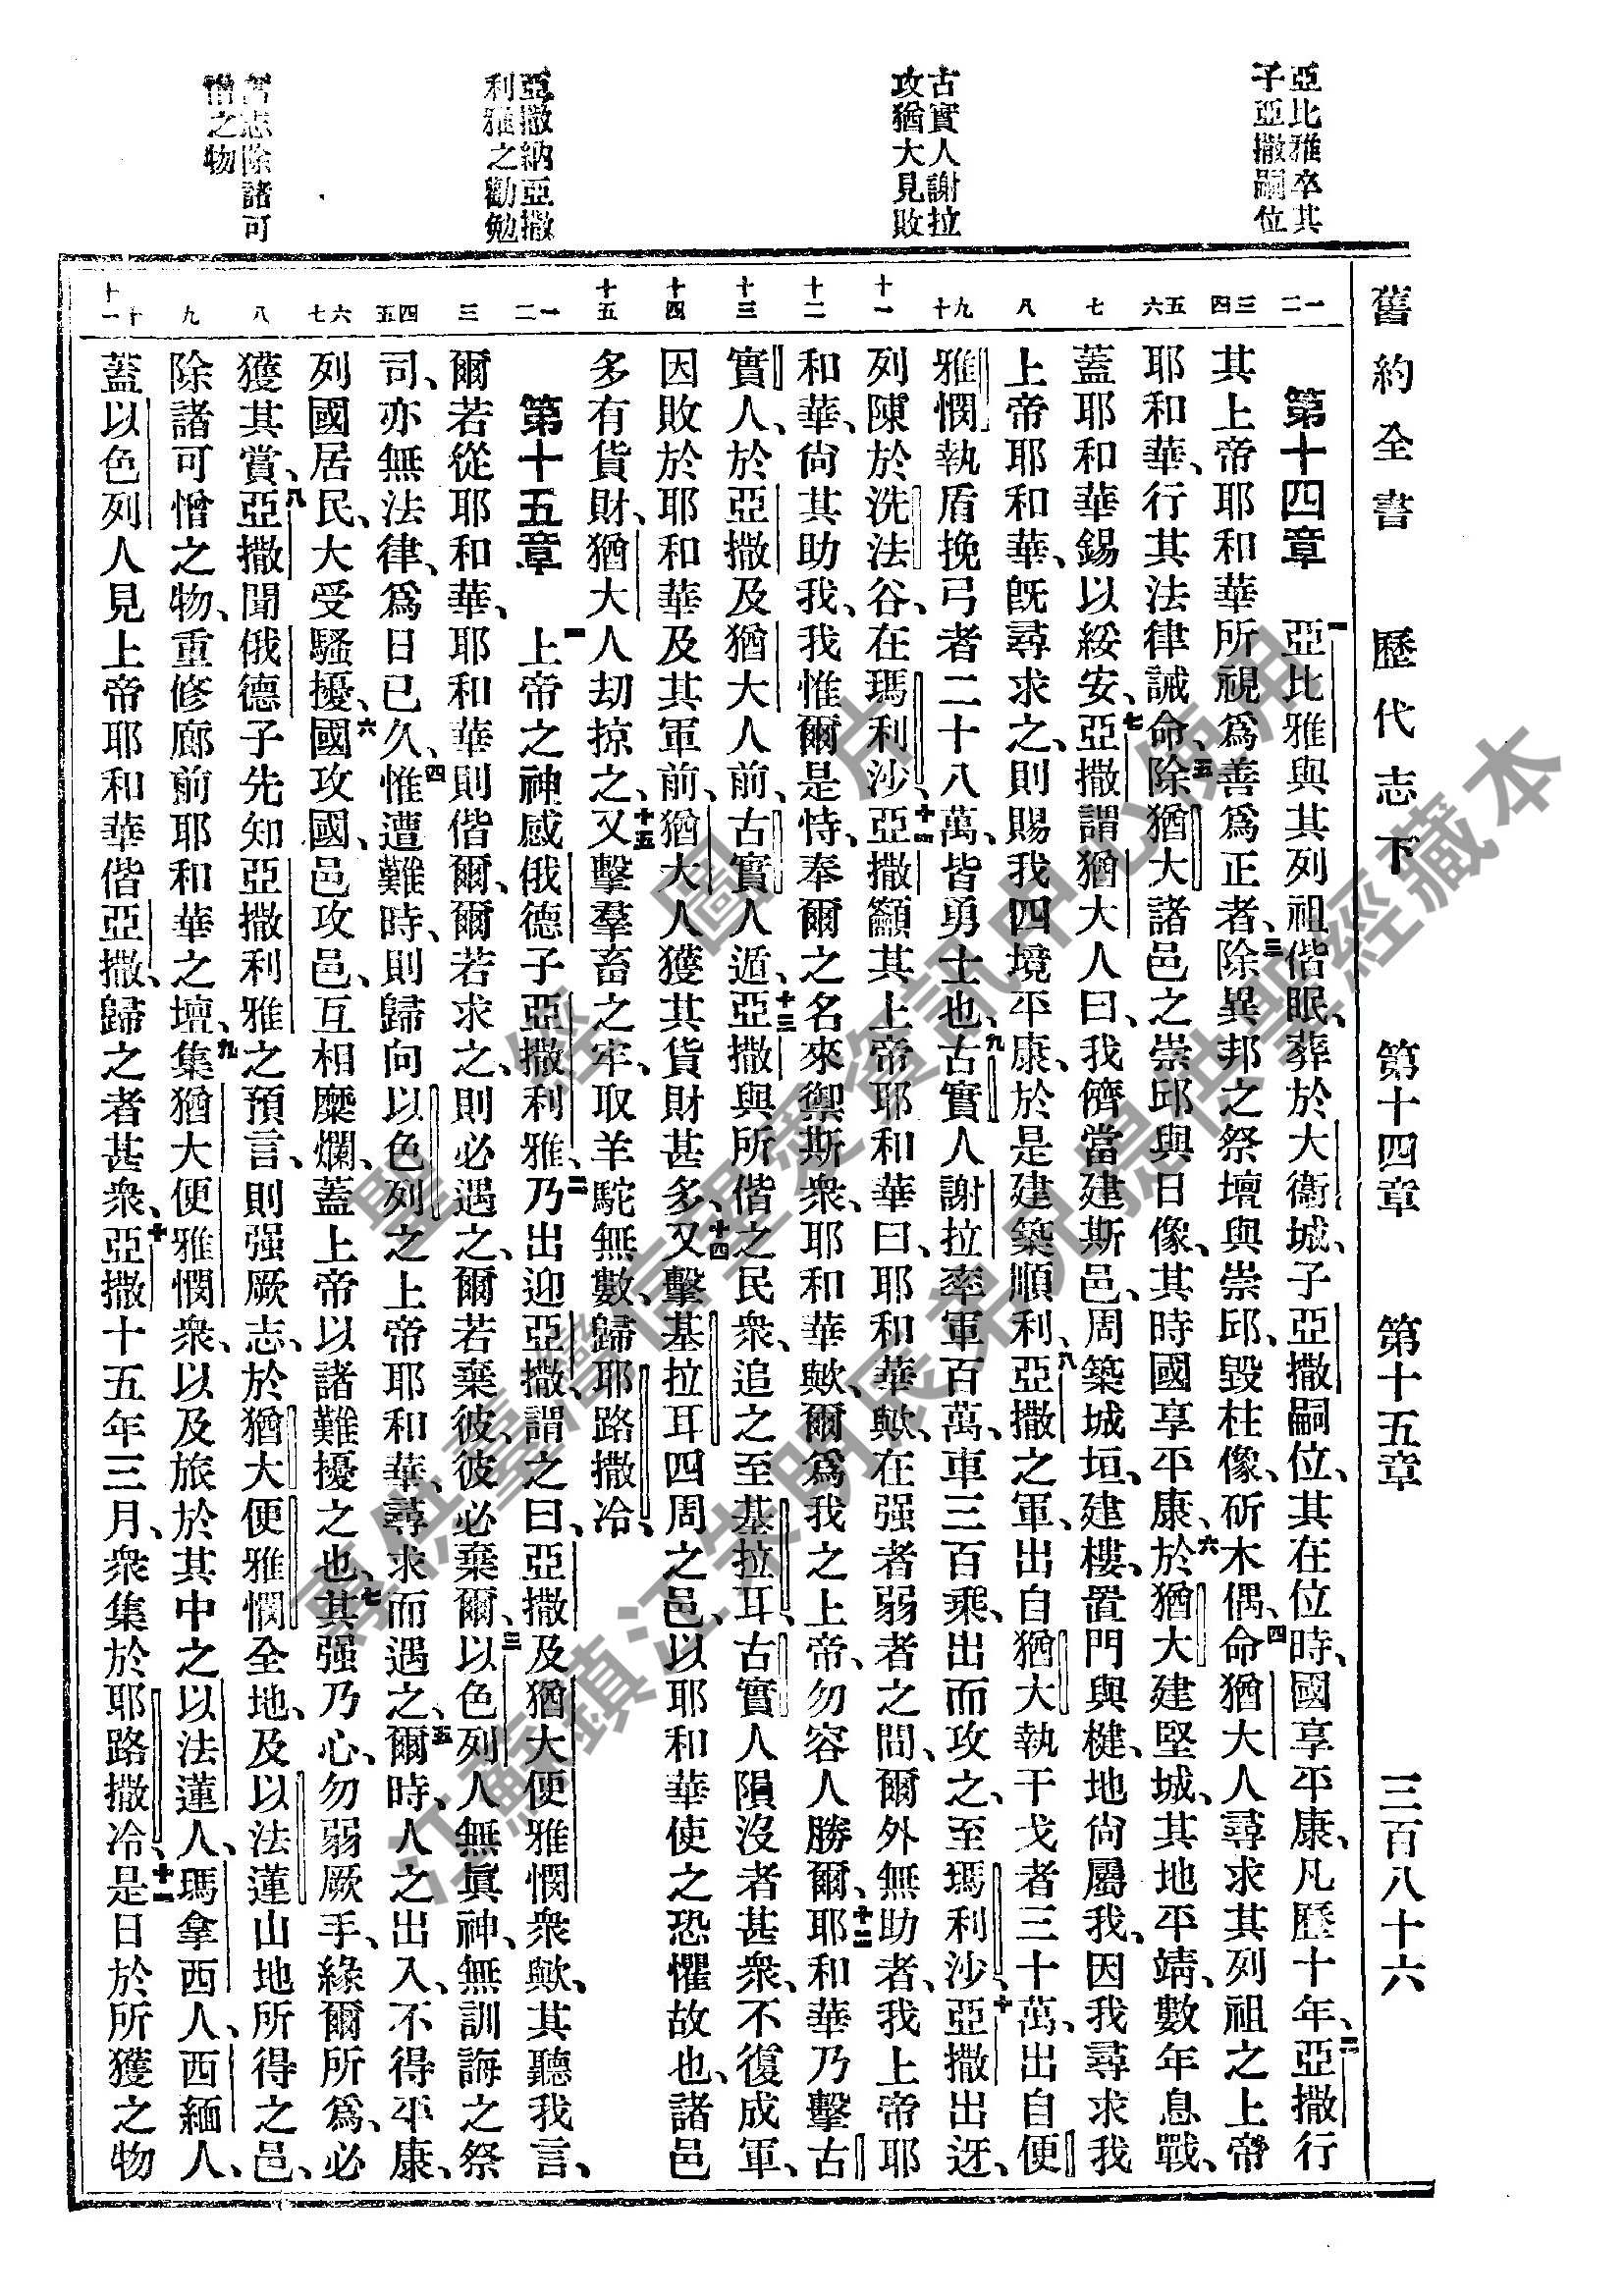 舊約全書　歷代志下　第十四章　第十五章　三百八十六
亞比雅卒其
子亞撒嗣位
古實人謝拉
攻猶大見敗
亞撒納亞撒
利雅之勸勉
志除諸可
憎之物
一二
三四
五六
七
八
九十
十一
十二
十三
十四
十五
一二
三
四五
六七
八
九
十十一
第十四章　一亞比雅與其列祖偕眠、葬於大衞城、子亞撒嗣位、其在位時、國享平康、凡歷十年、二亞撒行
其上帝耶和華所視爲善爲正者、三除異邦之祭壇與崇邱、毀柱像、斫木偶、四命猶大人尋求其列祖之上帝
耶和華、行其法律誡命、五除猶大諸邑之崇邱與日像、其時國享平康、六於猶大建堅城、其地平靖、數年息戰、
蓋耶和華錫以綏安、七亞撒謂猶大人曰、我儕當建斯邑、周築城垣、建樓、置門與楗、地尙屬我、因我尋求我
上帝耶和華、旣尋求之、則賜我四境平康、於是建築順利、八亞撒之軍、出自猶大執干戈者三十萬、出自便
雅憫執盾挽弓者二十八萬、皆勇士也、九古實人謝拉率軍百萬、車三百乘、出而攻之、至瑪利沙、十亞撒出迓、
列陳於洗法谷、在瑪利沙、十一亞撒籲其上帝耶和華曰、耶和華歟、在强者弱者之間、爾外無助者、我上帝耶
和華、尙其助我、我惟爾是恃、奉爾之名來禦斯衆、耶和華歟、爾爲我之上帝、勿容人勝爾、十二耶和華乃擊古
實人、於亞撒及猶大人前、古實人遁、十三亞撒與所偕之民衆、追之至基拉耳、古實人隕沒者甚衆、不復成軍、
因敗於耶和華及其軍前、猶大人獲其貨財甚多、十四又擊基拉耳四周之邑、以耶和華使之恐懼故也、諸邑
多有貨財、猶大人劫掠之、十五又擊羣畜之牢、取羊駝無數、歸耶路撒冷、
第十五章　一上帝之神感俄德子亞撒利雅、二乃出迎亞撒、謂之曰、亞撒及猶大便雅憫衆歟、其聽我言、
爾若從耶和華、耶和華則偕爾、爾若求之、則必遇之、爾若棄彼、彼必棄爾、三以色列人無眞神、無訓誨之祭
司、亦無法律、爲日已久、四惟遭難時、則歸向以色列之上帝耶和華、尋求而遇之、五爾時、人之出入、不得平康、
列國居民、大受騷擾、六國攻國、邑攻邑、互相糜爛、蓋上帝以諸難擾之也、七其强乃心、勿弱厥手、緣爾所爲、必
獲其賞、八亞撒聞俄德子先知亞撒利雅之預言、則强厥志、於猶大便雅憫全地、及以法蓮山地所得之邑、
除諸可憎之物、重修廊前耶和華之壇、九集猶大便雅憫衆、以及旅於其中之以法蓮人、瑪拿西人、西緬人、
蓋以色列人見上帝耶和華偕亞撒、歸之者甚衆、十亞撒十五年三月、衆集於耶路撒冷、十一是日於所獲之物
聖經圖片
專供臺灣信望愛資訊中心使用
江蘇鎮江朱明辰弟兄提供聖經藏本